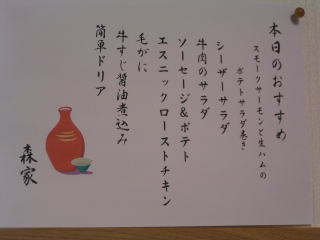 本日のおすすめ
スモークサーモンと生ハムの
ポテトサラダ巻き
シーザーサラダ
牛肉のサラダ
ソーセージ&ポテト
エスニックローストチキン
毛がに
牛すじ醤油煮込み
簡単ドリア
森家